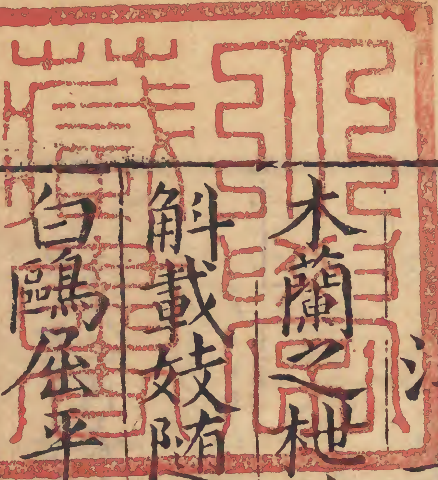 木蘭之枻
斛載妓随
白鷗屈平